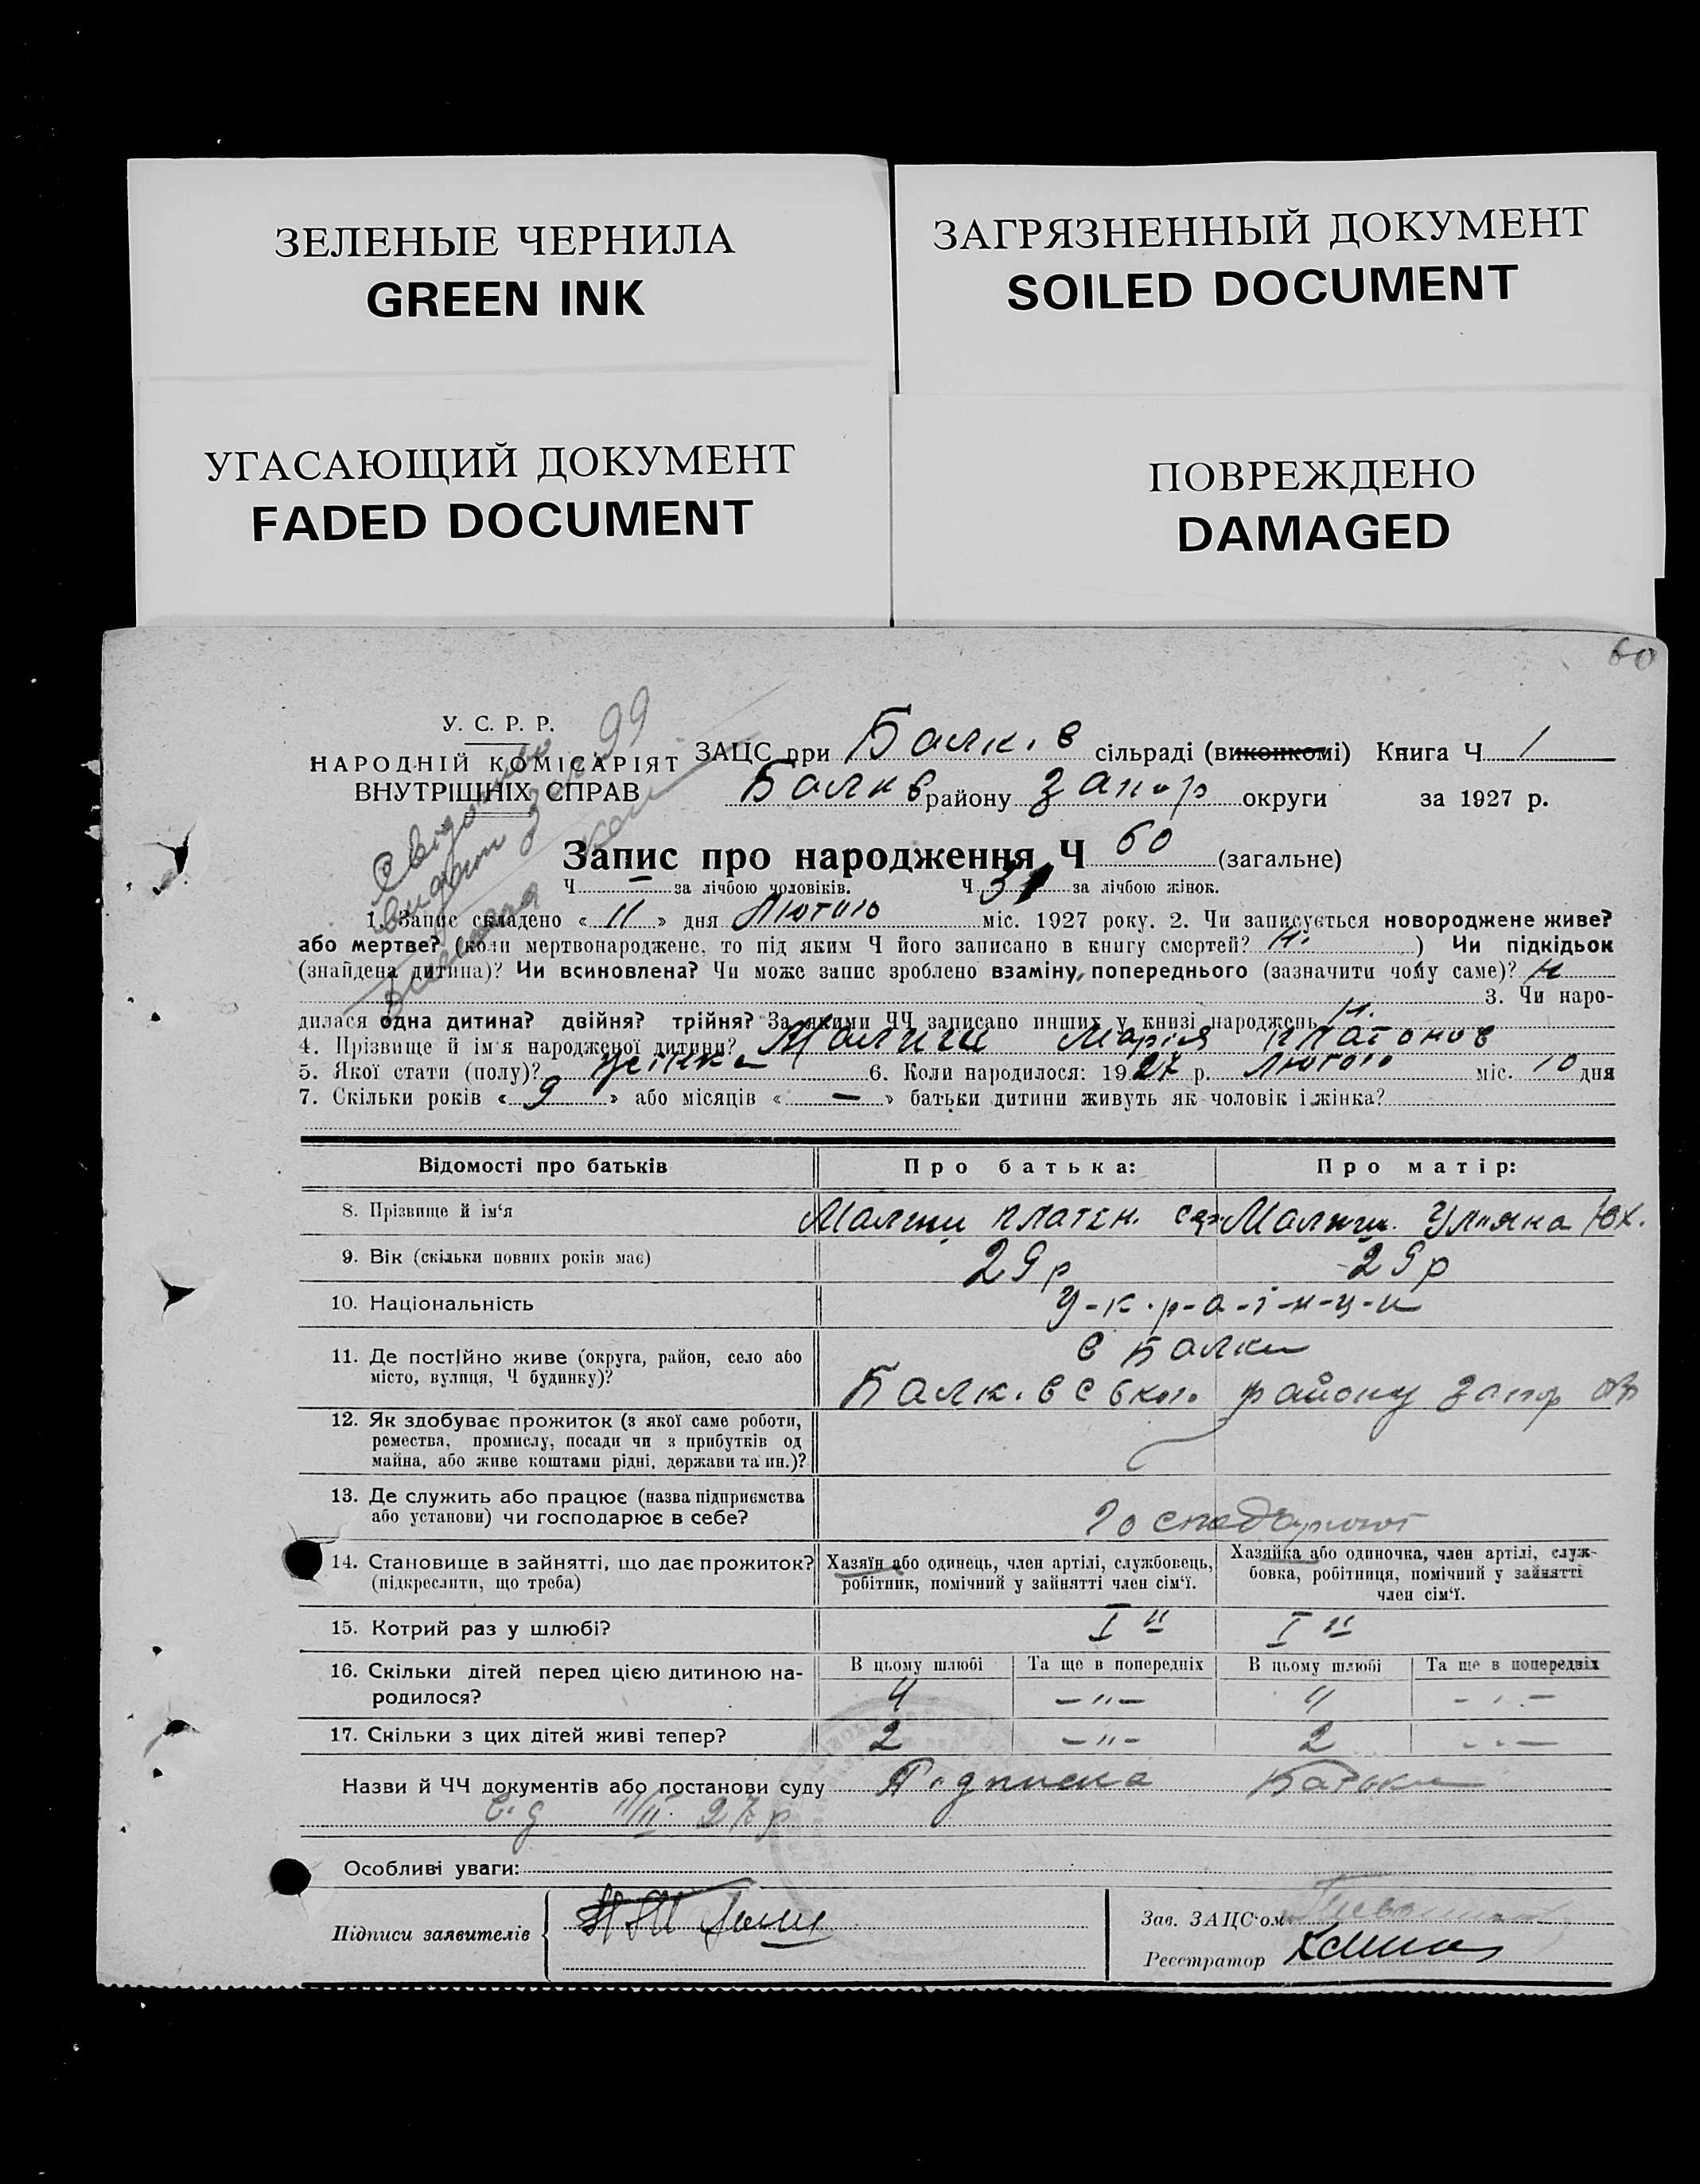 ЗЕЛЕНЫЕ ЧЕРНИЛА
GREEN INK
ЗАГРЯЗНЕННЫЙ ДОКУМЕНТ
SOILED DOCUMENT
УГАСАЮЩИЙ ДОКУМЕНТ
FADED DOCUMENT
ПОВРЕЖДЕНО
DAMAGED
60
У. С. Р. Р.
НАРОДНІЙ КОМІСАРІЯТ
ВНУТРІШНІХ СПРАВ
99
ЗАЦС при Балк.в сільраді (виконкомі) Книга Ч 1
Балкв району Запор округи за 1927 р.
Запис про народження Ч 60 (загальне)
Ч — за лічбою чоловіків. Ч 31 за лічбою жінок.
1. Запис складено « 11 » дня Лютого міс. 1927 року. 2. Чи записується новороджене живе?
або мертве? (коли мертвонароджене, то під яким Ч його записано в книгу смертей? н. ) Чи підкідьок
(знайдена дитина)? Чи всиновлена? Чи може запис зроблено взаміну попереднього (зазначити чому саме)? н
3. Чи наро-
дилася одна дитина? двійня? трійня? За якими ЧЧ записано инших у книзі народжень н.
4. Прізвище й ім'я народженої дитини? Марія Платонов
5. Якої стати (полу)? 6. Коли народилося: 1927 р. Лютого міс. 10 дня
7. Скільки років « 9 » або місяців « — » батьки дитини живуть як чоловік і жінка?
Відомості про батьків Про батька: Про матір:
8. Прізвище й ім'я Платон. Уляна Юх.
9. Вік (скільки повних років має) 29 р 29 р
10. Національність У-к-р-а-ї-н-ц-и
11. Де постійно живе (округа, район, село або
місто, вулиця, Ч будинку)?
с Балки
Балк.вського району Запор окр
12. Як здобуває прожиток (з якої саме роботи,
ремества, промислу, посади чи з прибутків од
майна, або живе коштами рідні, держави та ин.)?
13. Де служить або працює (назва підприємства
або установи) чи господарює в себе?
Господарюют
14. Становище в зайнятті, що дає прожиток?
(підкреслити, що треба)
Хазяїн або одинець, член артілі, службовець,
робітник, помічний у зайнятті член сім'ї.
Хазяйка або одиночка, член артілі, служ-
бовка, робітниця, помічний у зайнятті
член сім'ї.
15. Котрий раз у шлюбі? I й I й
16. Скільки дітей перед цією дитиною на-
родилося?
В цьому шлюбі Та ще в попередніх В цьому шлюбі Та ще в попередніх
4 —"— 4 —"—
17. Скільки з цих дітей живі тепер? 2 —"— 2 —"—
Назви й ЧЧ документів або постанови суду П.дписка Батьки
в.д 11/II 27 р
Особливі уваги:
Підписи заявителів
Зав. ЗАЦС'ом
Реєстратор